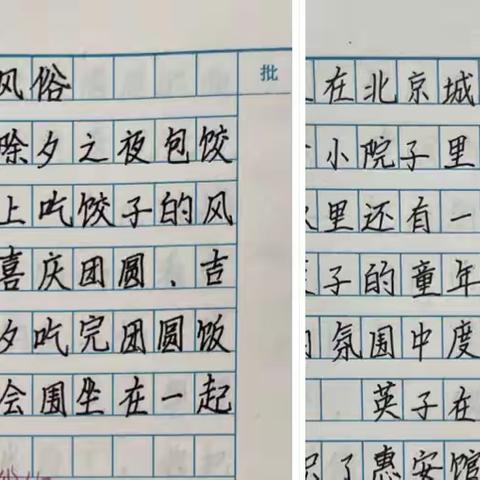 风俗
批
除夕之夜包饺
上吃饺子的风
喜庆团圆、吉
夕吃完团圆饭
会围坐在一起
在北京城
小院子里
里还有一
子的童年
氛围中度
英子在
了惠安馆